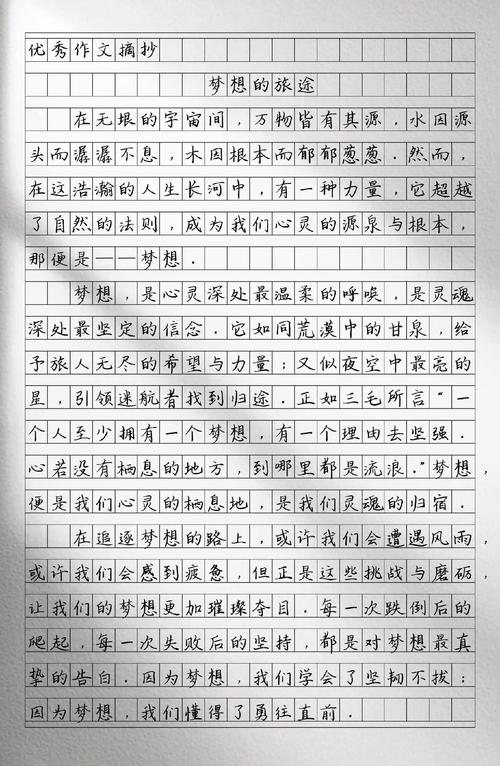 优秀作文摘抄
梦想的旅途
在无垠的宇宙间，万物皆有其源，水因源
头而潺潺不息，木因根本而郁郁葱葱．然而，
在这浩瀚的人生长河中，有一种力量，它超越
了自然的法则，成为我们心灵的源泉与根本，
那便是——梦想．
梦想，是心灵深处最温柔的呼唤，是灵魂
深处最坚定的信念．它如同荒漠中的甘泉，给
予旅人无尽的希望与力量；又似夜空中最亮的
星，引领迷航者找到归途．正如三毛所言“一
个人至少拥有一个梦想，有一个理由去坚强．
心若没有栖息的地方，到哪里都是流浪．”梦想，
便是我们心灵的栖息地，是我们灵魂的归宿．
在追逐梦想的路上，或许我们会遭遇风雨，
或许我们会感到疲惫，但正是这些挑战与磨砺，
让我们的梦想更加璀璨夺目．每一次跌倒后的
爬起，每一次失败后的坚持，都是对梦想最真
挚的告白．因为梦想，我们学会了坚韧不拔；
因为梦想，我们懂得了勇往直前．